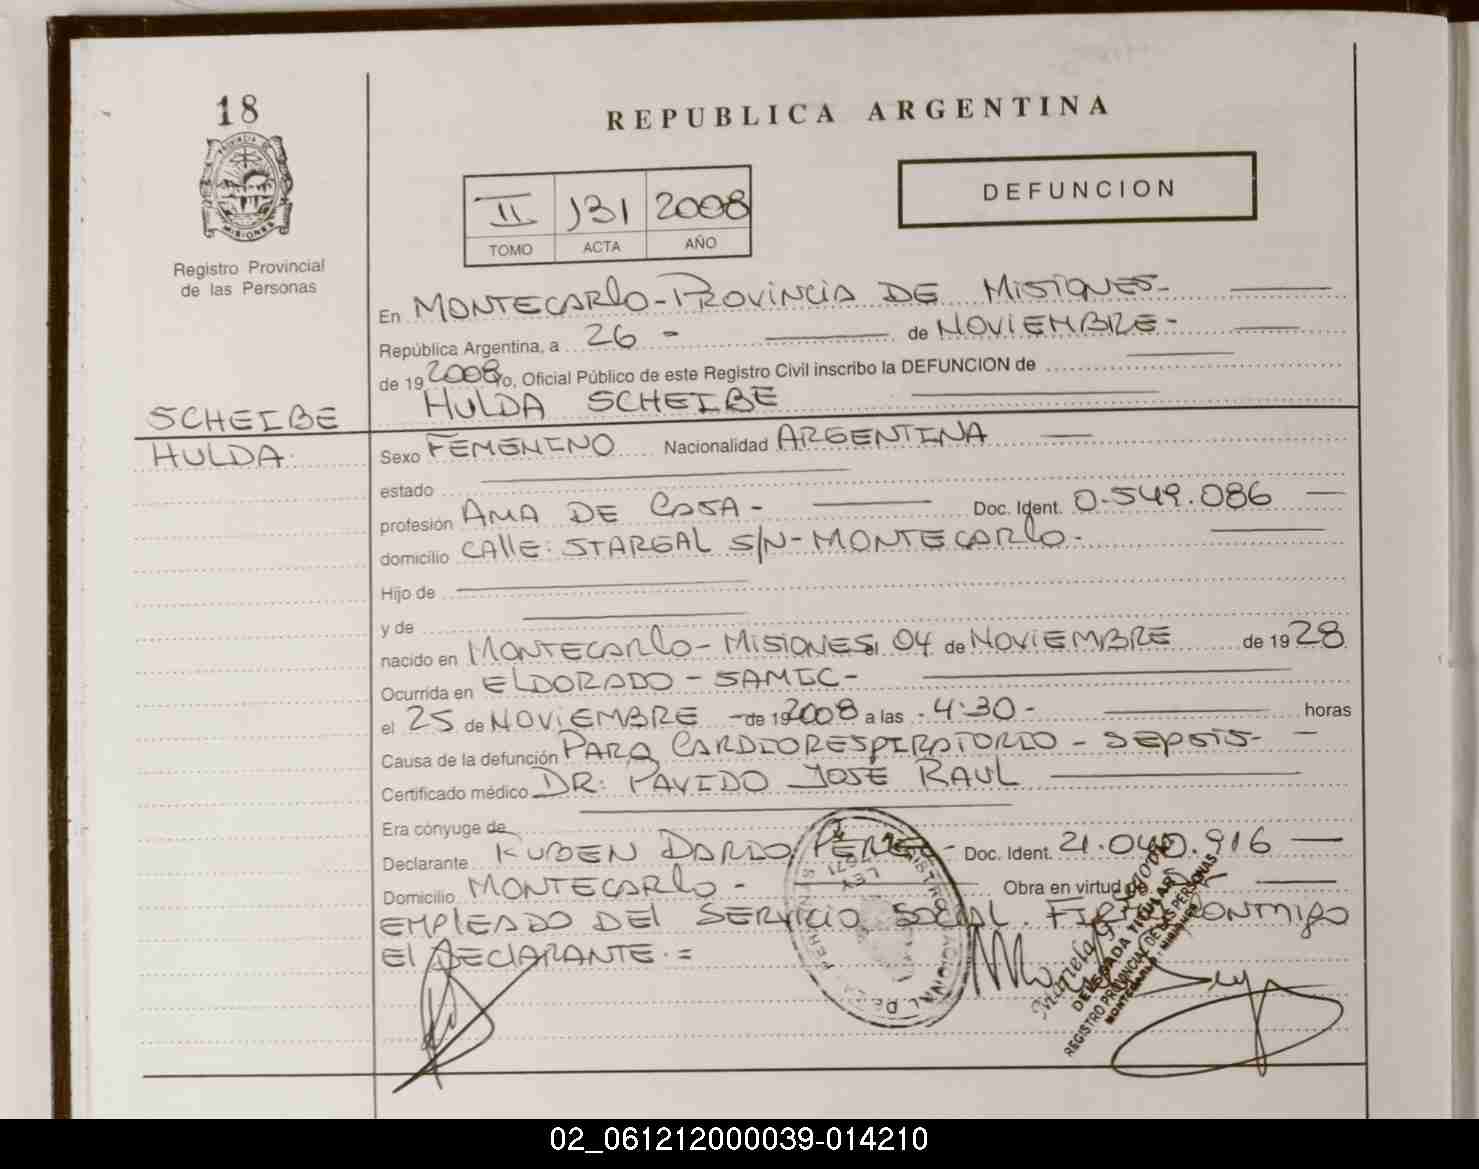 18
PROVINCIA DE
MISIONES
Registro Provincial
de las Personas
REPUBLICA ARGENTINA
II 131 2008
TOMO ACTA AÑO
DEFUNCION
En MONTECARLO-PROVINCIA DE MISIONES-
República Argentina, a 26 - de NOVIEMBRE-
de 19 2008 yo, Oficial Público de este Registro Civil inscribo la DEFUNCION de
HULDA SCHEIBE
SCHEIBE
HULDA
Sexo FEMENINO Nacionalidad ARGENTINA
estado
profesión AMA DE CASA- Doc. Ident. 0.549.086
domicilio CALLE: STAREAL S/N-MONTECARLO.
Hijo de
y de
nacido en MONTECARLO-MISIONES el 04 de NOVIEMBRE de 19 28
Ocurrida en ELDORADO-SAMIC-
el 25 de NOVIEMBRE - de 19 2008 a las 4:30- horas
Causa de la defunción PARO CARDIORESPIRATORIO - SEPSIS-
Certificado médico DR: PAVIDO JOSE RAUL
Era cónyuge de
Declarante RUBEN DARIO PEREZ- Doc. Ident. 21.040.916
Domicilio MONTECARLO - Obra en virtud de
EMPLEADO DEL SERVICIO SOCIAL. FIRMA CONMIGO
El DECLARANTE.=
DELEGADA TITULAR
REGISTRO PROVINCIAL DE LAS PERSONAS
MONTECARLO - MISIONES
02_061212000039-014210